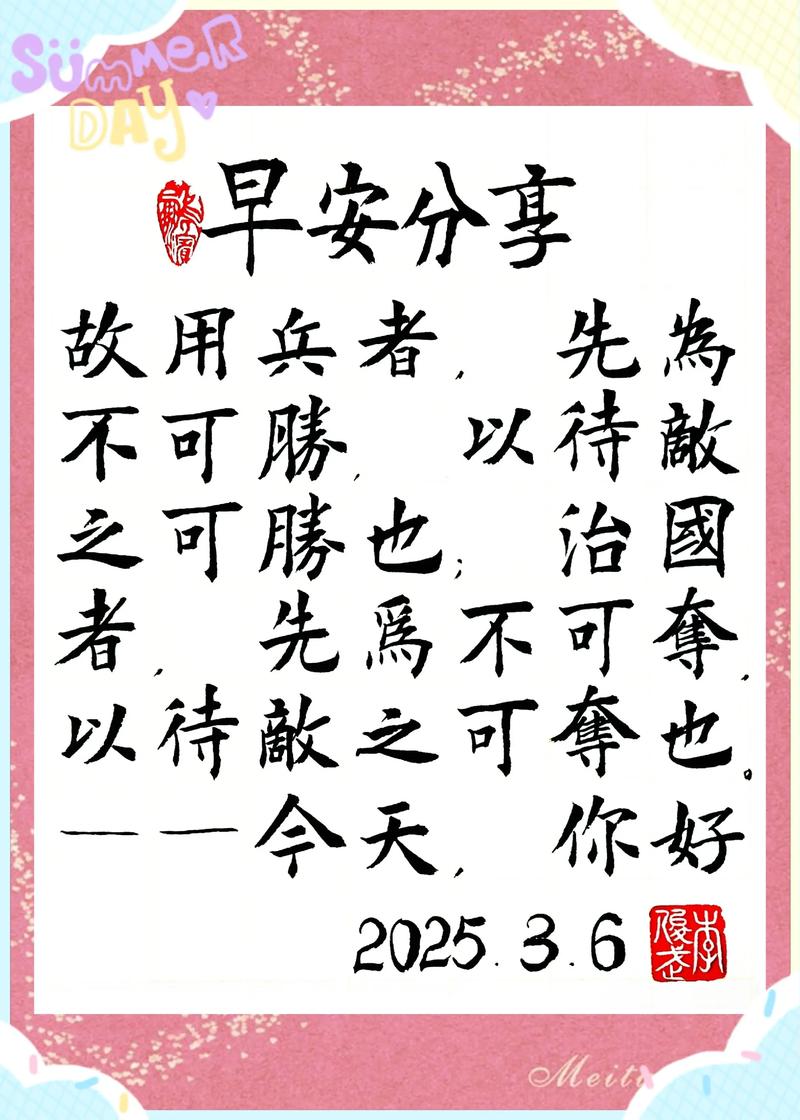 SÜMMER
DAY
早安分享
故用兵者,先為
不可勝,以待敵
之可勝也;治國
者,先爲不可奪,
以待敵之可奪也。
——今天,你好
2025.3.6
李俊武